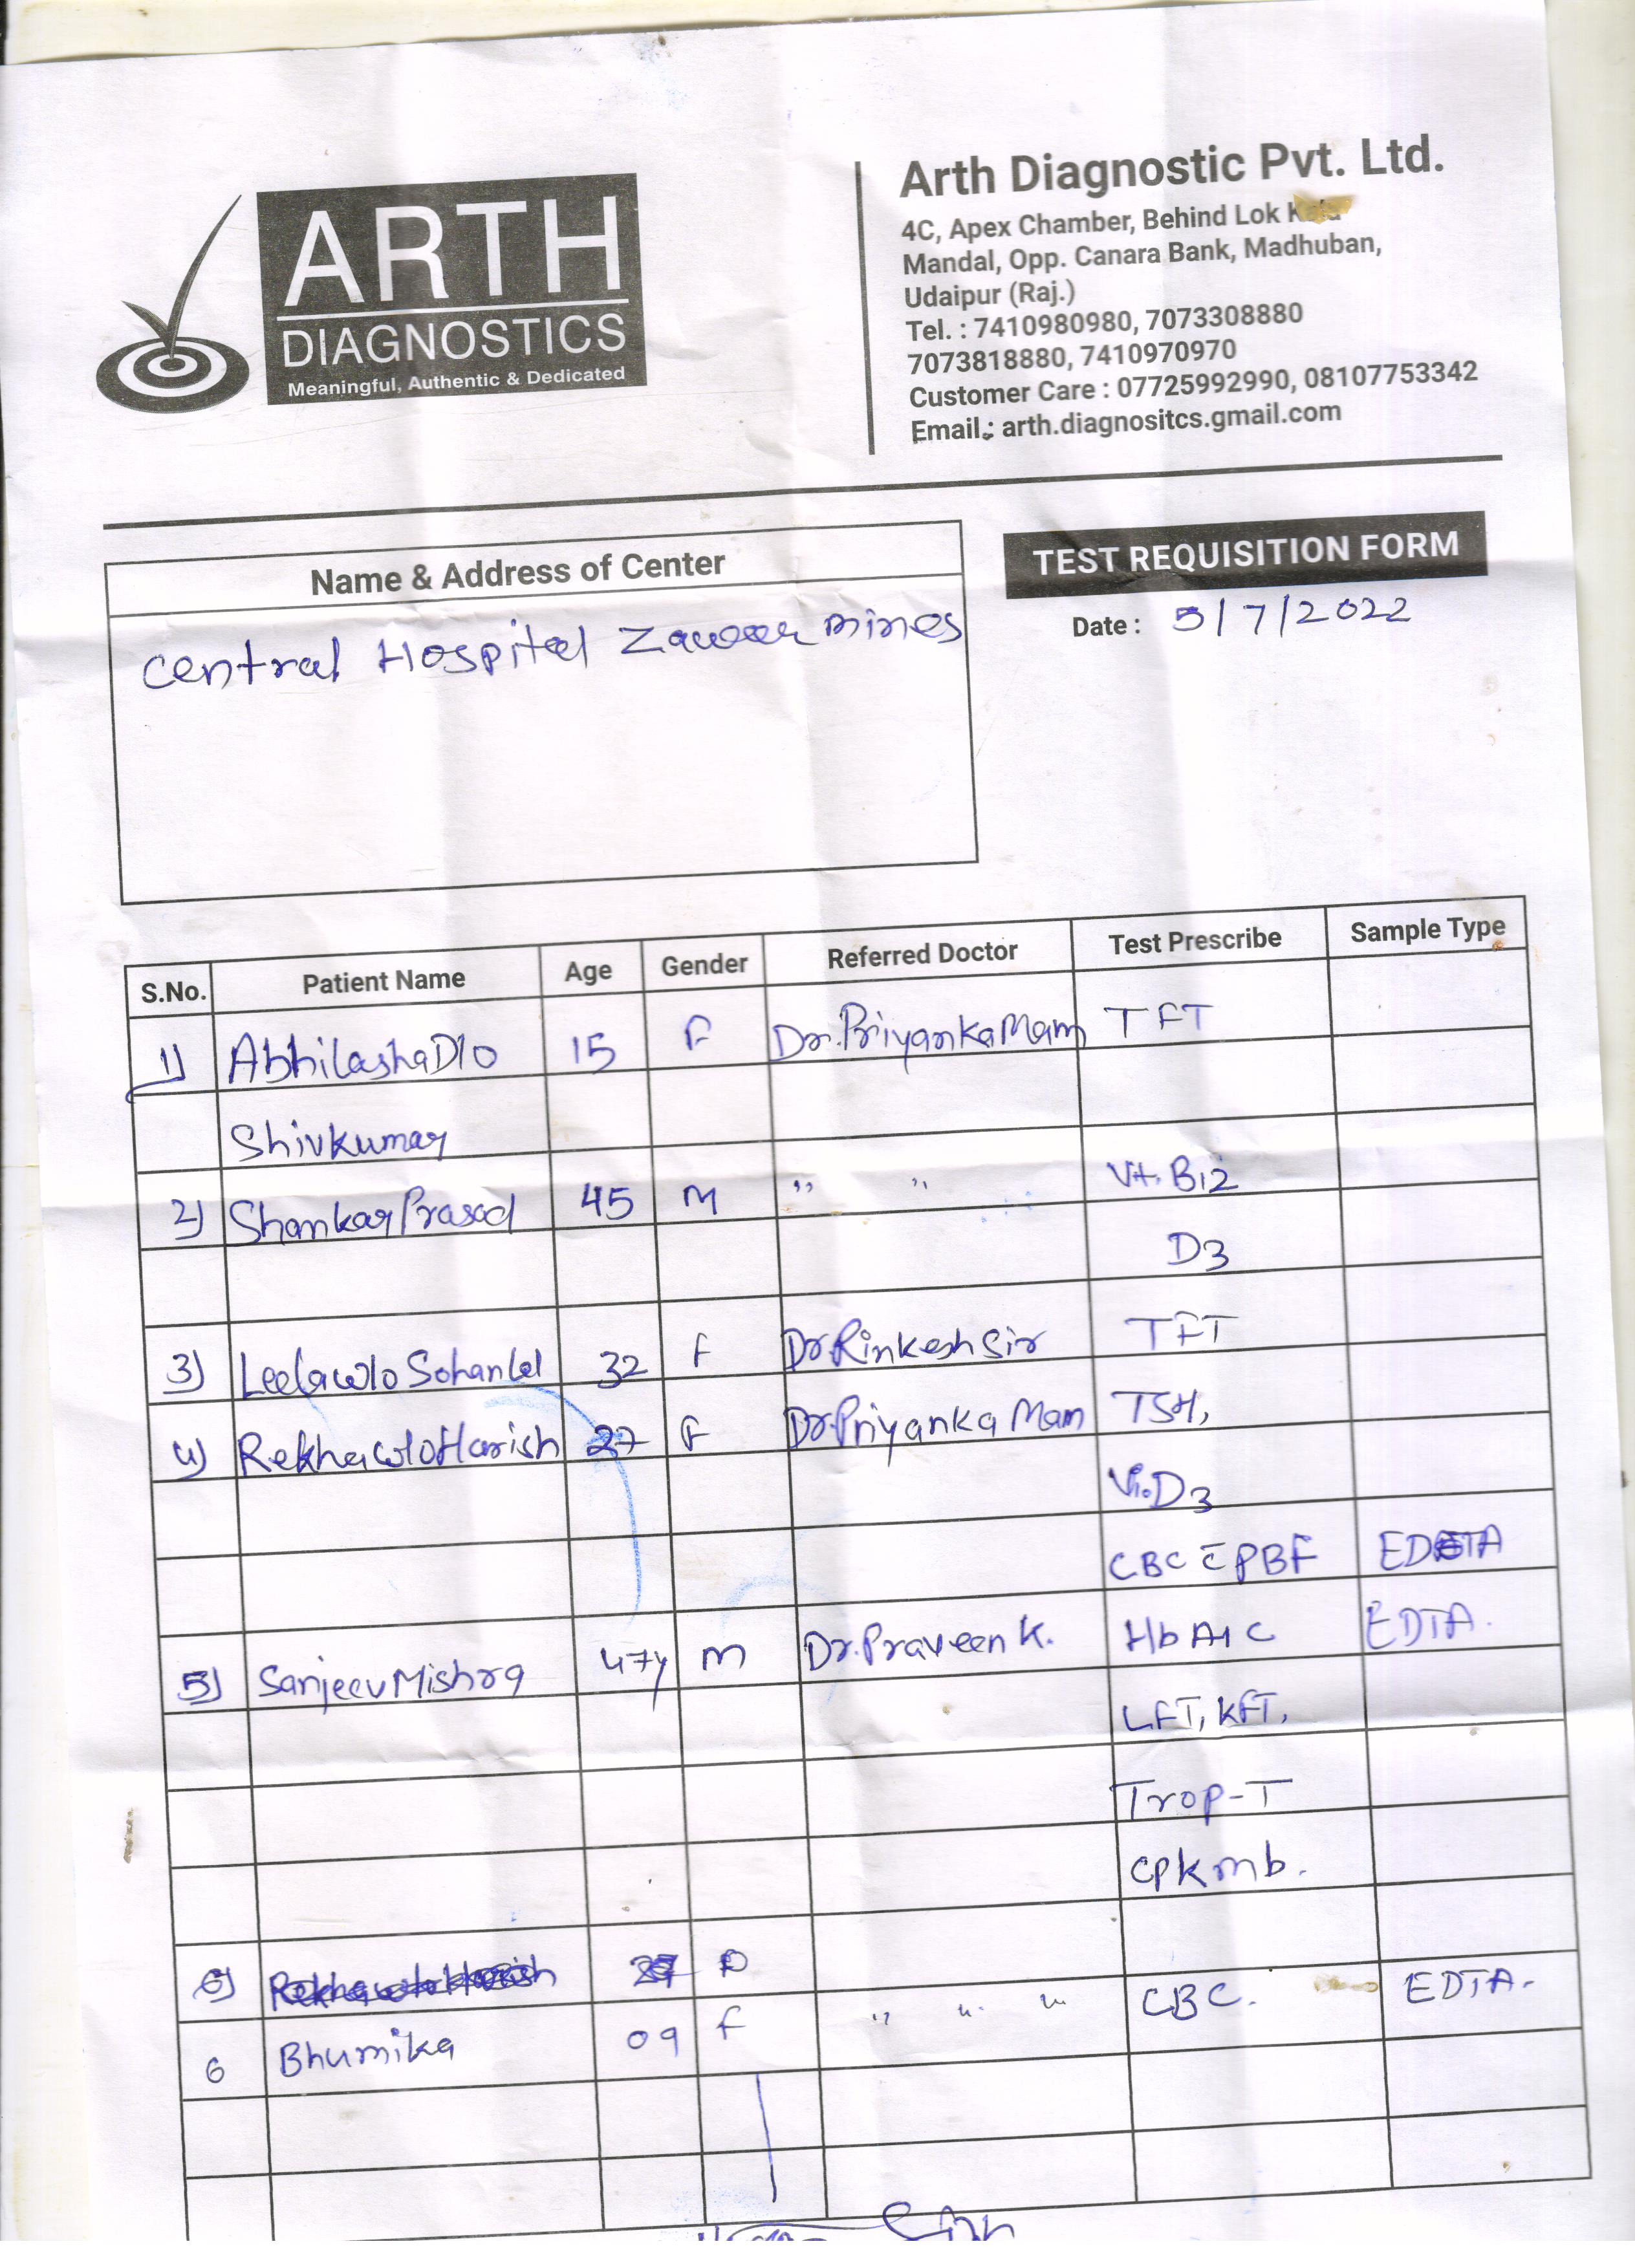 ARTH
DIAGNOSTICS
Meaningful, Authentic & Dedicated
Arth Diagnostic Pvt. Ltd.
4C, Apex Chamber, Behind Lok Kala
Mandal, Opp. Canara Bank, Madhuban,
Udaipur (Raj.)
Tel. : 7410980980, 7073308880
7073818880, 7410970970
Customer Care : 07725992990, 08107753342
Email.: arth.diagnositcs.gmail.com
Name & Address of Center
TEST REQUISITION FORM
Date : 5/7/2022
Central Hospital Zawar mines
S.No. Patient Name Age Gender Referred Doctor Test Prescribe Sample Type
1) Abhilasha D/o 15 F Dr. Priyanka Mam TFT
Shivkumar
2) Shankar Prasad 45 M " " Vit. B12
D3
3) Leela w/o Sohanlal 32 F Dr Rinkesh Sir TFT
4) Rekha w/o Harish 27 F Dr. Priyanka Mam TSH,
Vi. D3
CBC c̄ PBF EDTA
5) Sanjeev Mishra 47y M Dr. Praveen K. HbA1C EDTA.
LFT, KFT,
Trop-T
cpkmb.
6) Rekha w/o Harish 27
6 Bhumika 09 F " " " CBC. EDTA.